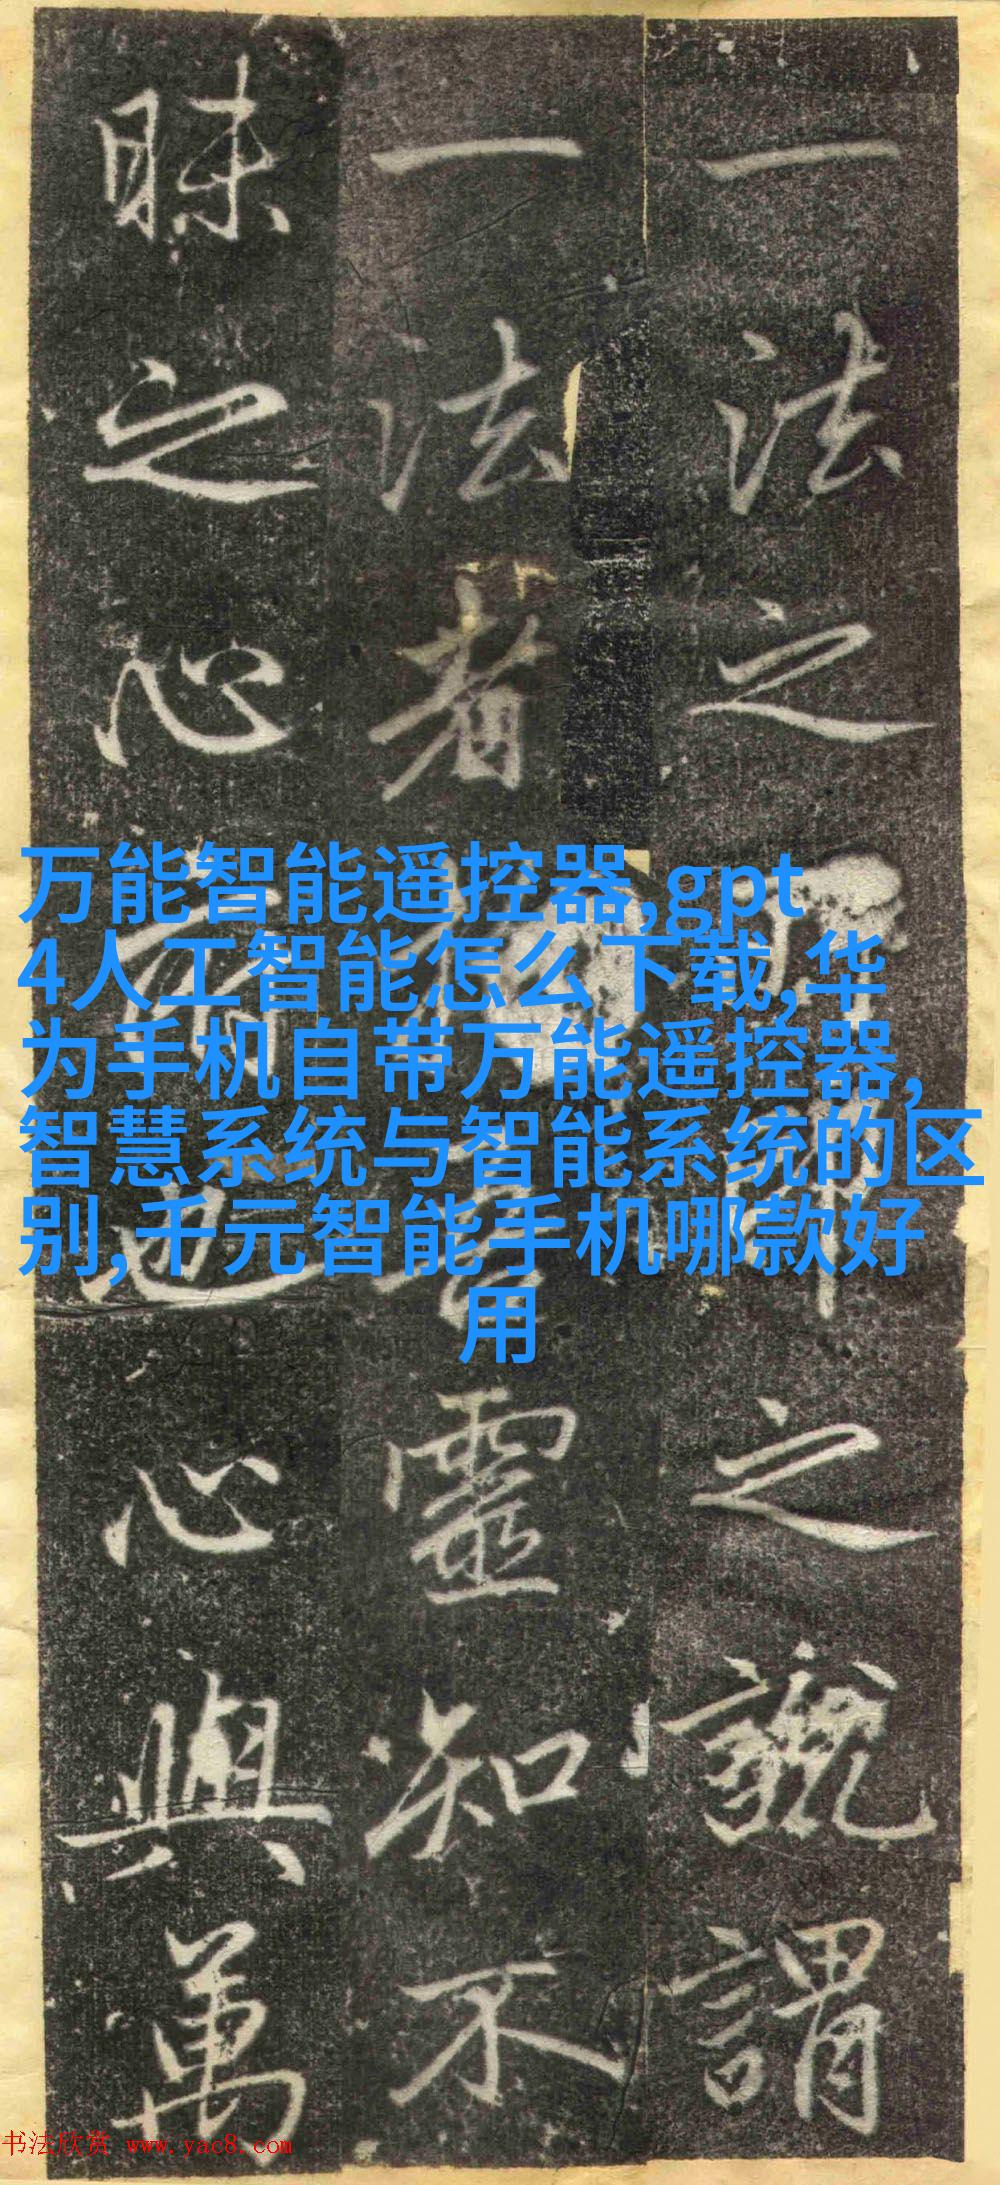 一法之之謂
一法者靈知不
昧之心也心與萬
万能智能遥控器,gpt
4人工智能怎么下载,华
为手机自带万能遥控器,
智慧系统与智能系统的区
别,千元智能手机哪款好
用
书法欣赏 www.yac8.com